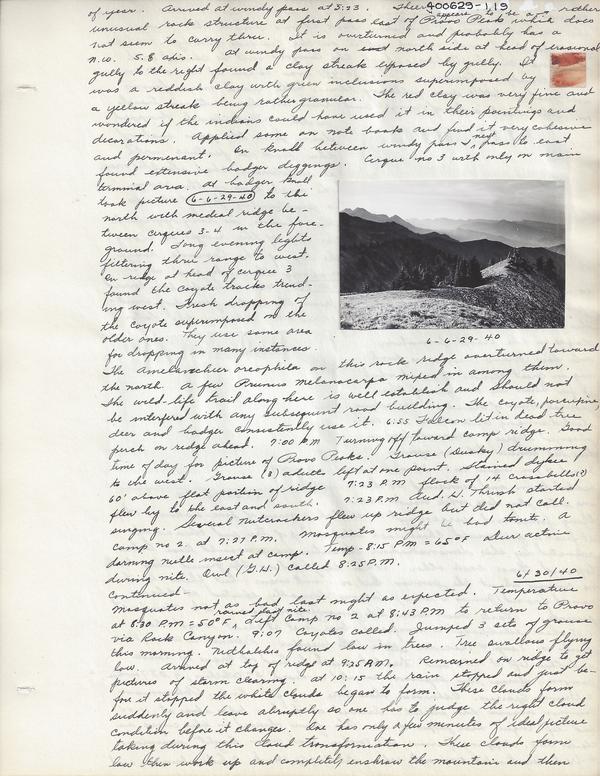 400629-119
of year. Arrived at windy pass at 5:33. There appears to be a rather
unusual rock structure at first pass east of Provo Peak which does
not seem to carry thru. It is overturned and probably has a
N.W. 5.8 dip. At windy pass on north side at head of erosional
gully to the right found a clay streak exposed by gully. It
was a reddish clay with green inclusions superimposed by
a yellow streak being rather granular. The red clay was very fine and
wondered if the indians could have used it in their paintings and
decorations. Applied some on note book and find it very cohesive
and permenant. On knoll between windy pass & next pass to east
found extensive badger diggings. Cirque no 3 with only on main
terminal area. At badger knoll
took picture 6-6-29-40 to the
north with medial ridge be-
tween cirques 3-4 in the fore-
ground. Long evening lights
filtering thru range to west.
On ridge at head of cirque 3
found the coyote tracks trend-
ing west. Fresh dropping of
the coyote superimposed on the
older ones. They use some area
for dropping in many instances.
6-6-29-40
The Amelanchier oreophila on this rock ridge overturned toward
the north. A few Prunus Melanocarpa mixed in among them.
The wild-life trail along here is well establish and should not
be interfered with any subsequent road building. The coyote, porcupine,
deer and badger consistently use it. 6:55 Falcon lit in dead tree
perch on ridge ahead. 7:00 P.M Turning off toward camp ridge. Good
time of day for picture of Provo Peaks. Grouse (Dusky) drumming
to the west. Grouse (3) adults left at one point. Stained dykes
60' above flat portion of ridge 7:23 P.M flock of 14 crossbills(?)
flew by to the east and south. 7:23 P.M Aud. H. Thrush started
singing. Several Nutcrackers flew up ridge but did not call.
Camp no 2 at 7:27 P.M. Mosquetes might be bad tonite. A
darning nedle insect at camp. Temp - 8:15 P.M = 65°F deer active
during nite. Owl (G.H.) called 8:25 P.M.
6/30/40
continued-
Mosquetes not as bad last night as expected. Temperature
at 8:30 P.M = 50°F, rained during nite. Left Camp no 2 at 8:43 P.M to return to Provo
via Rock Canyon. 9:07 Coyotes called. Jumped 3 sets of grouse
this morning. Nuthatches found low in trees. Tree swallows flying
low. Arrived at top of ridge at 9:25 A.M. Remained on ridge to get
pictures of storm clearing. at 10:15 the rain stopped and just be-
fore it stopped the white clouds began to form. These clouds form
suddenly and leave abruptly so one has to judge the right cloud
condition before it changes. One has only a few minutes of ideal picture
taking during this cloud transformation. These clouds form
low then work up and completely enshrow the mountains and then